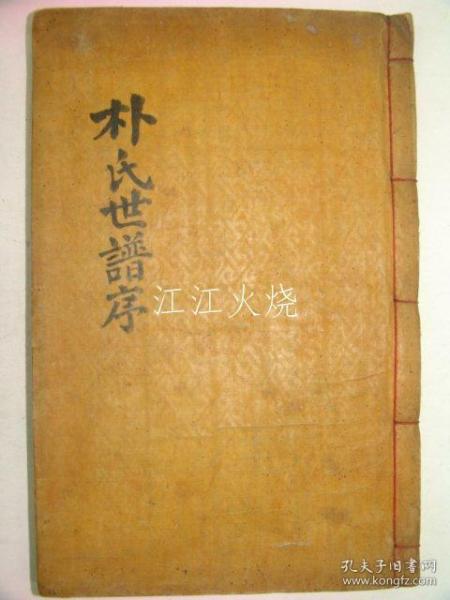 朴氏世譜序
江江火烧
孔夫子旧书网
www.kongfz.com